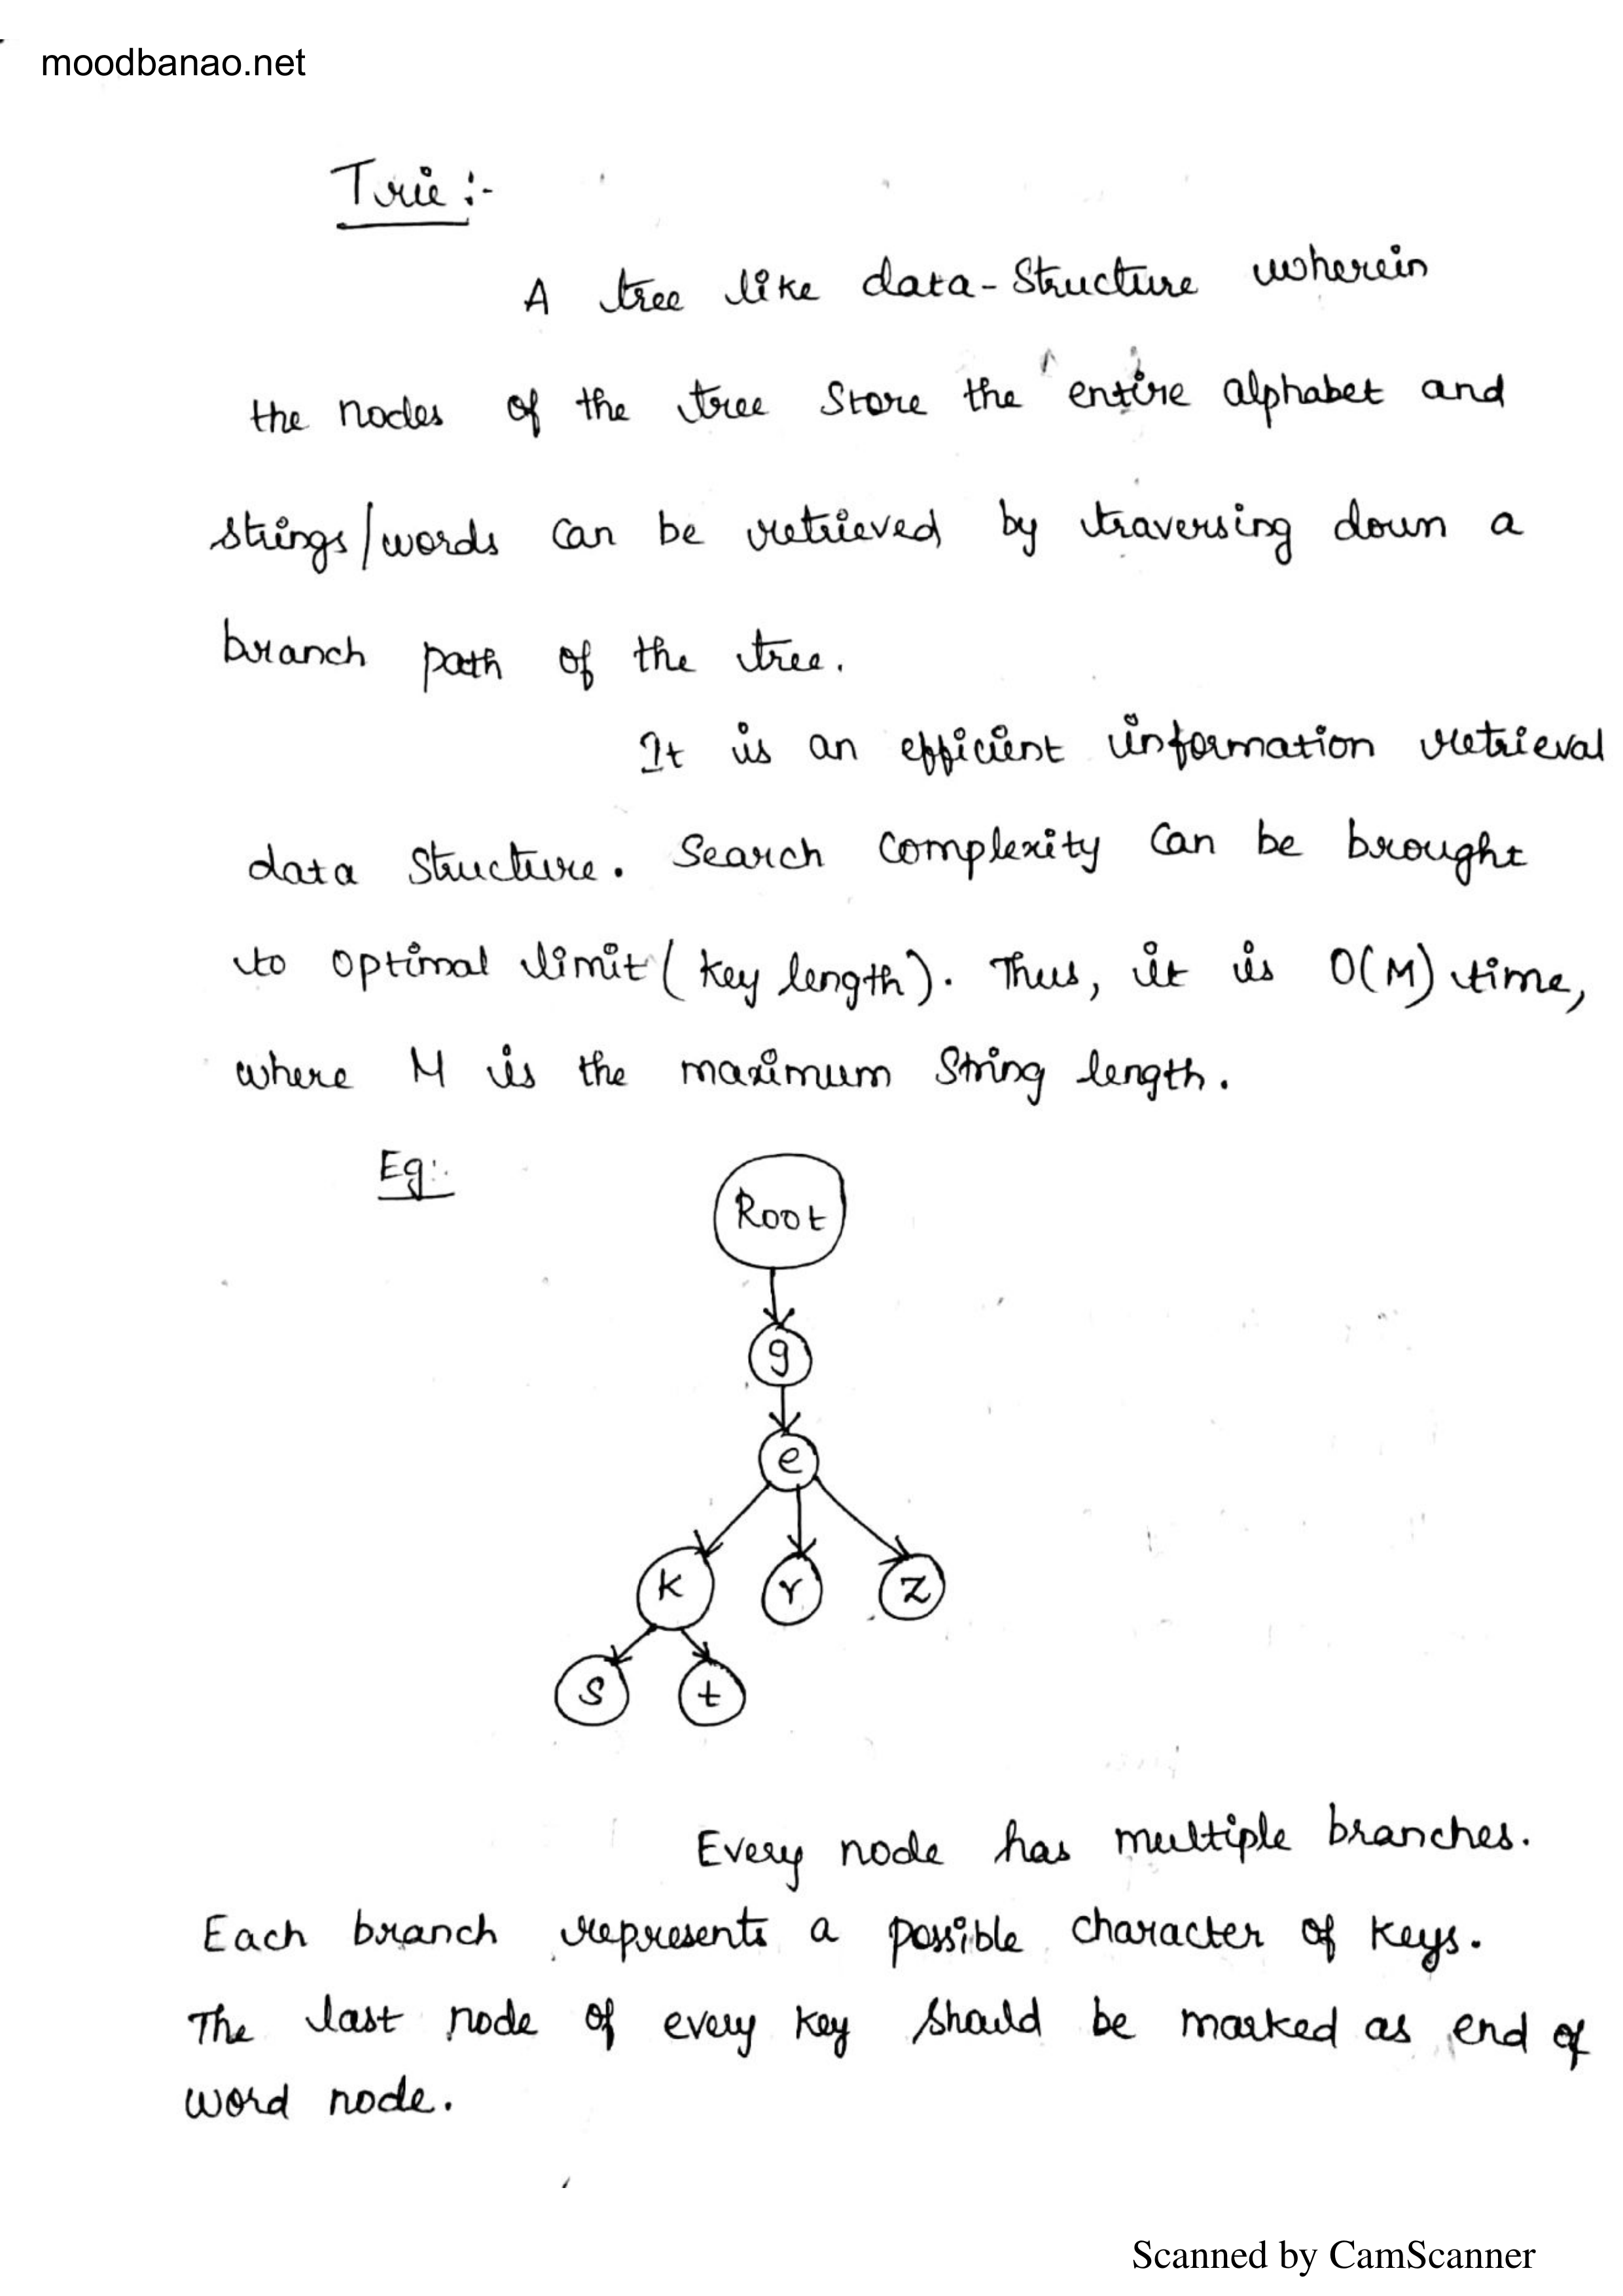 moodbanao.net
Trie :-
A tree like data-Structure wherein
the nodes of the tree Store the entire alphabet and
strings/words can be retrieved by traversing down a
branch path of the tree.
It is an efficient information retrieval
data Structure. Search Complexity Can be brought
to optimal limit (key length). Thus, it is O(M) time,
where M is the maximum String length.
Eg:
Root
g
e
k r z
s t
Every node has multiple branches.
Each branch represents a possible character of keys.
The last node of every key should be marked as end of
word node.
Scanned by CamScanner